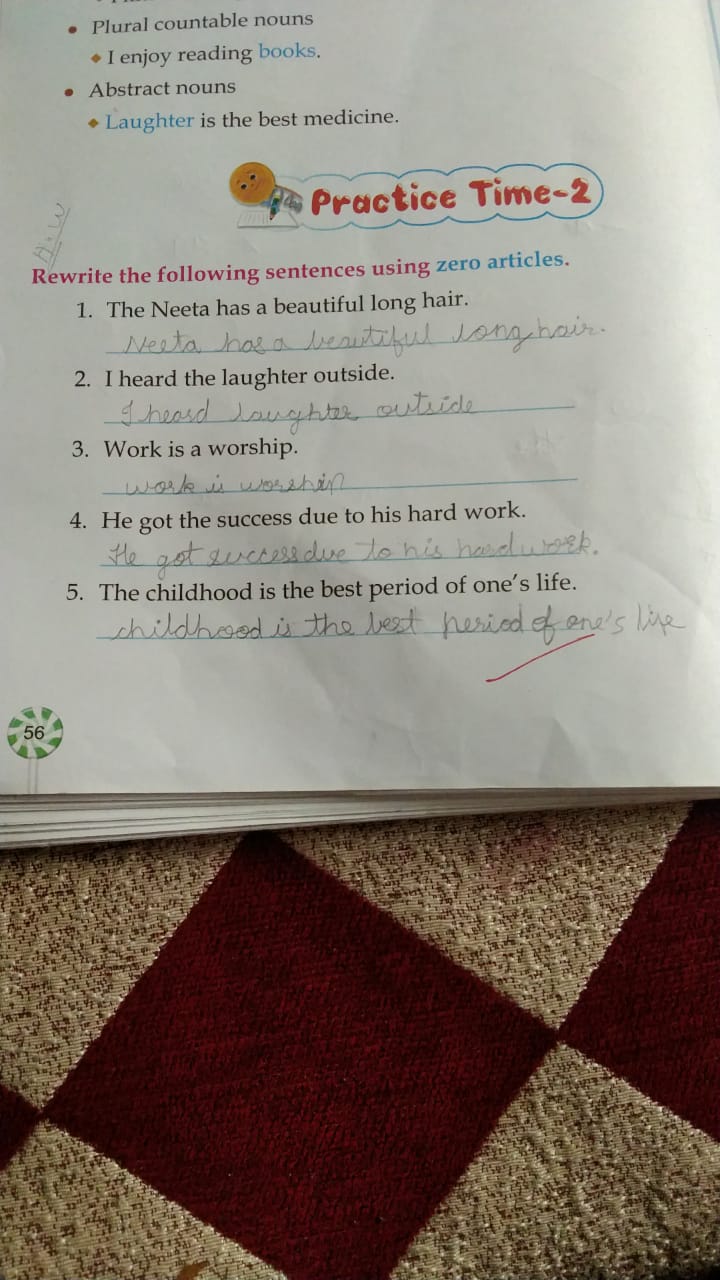 • Plural countable nouns
◆ I enjoy reading books.
• Abstract nouns
◆ Laughter is the best medicine.
Practice Time-2
H.W
Rewrite the following sentences using zero articles.
1. The Neeta has a beautiful long hair.
Neeta has a beautiful long hair.
2. I heard the laughter outside.
I heard laughter outside
3. Work is a worship.
work is worship
4. He got the success due to his hard work.
He got success due to his hard work.
5. The childhood is the best period of one's life.
childhood is the best period of one's life
56